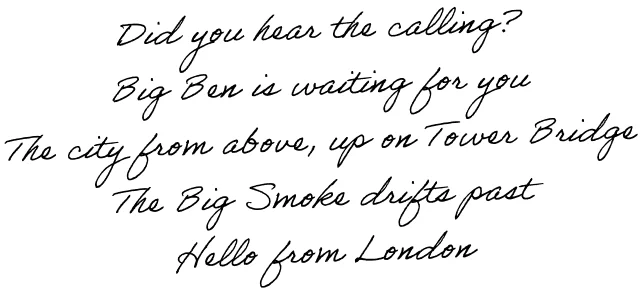 Did you hear the calling?
Big Ben is waiting for you
The city from above, up on Tower Bridge
The Big Smoke drifts past
Hello from London